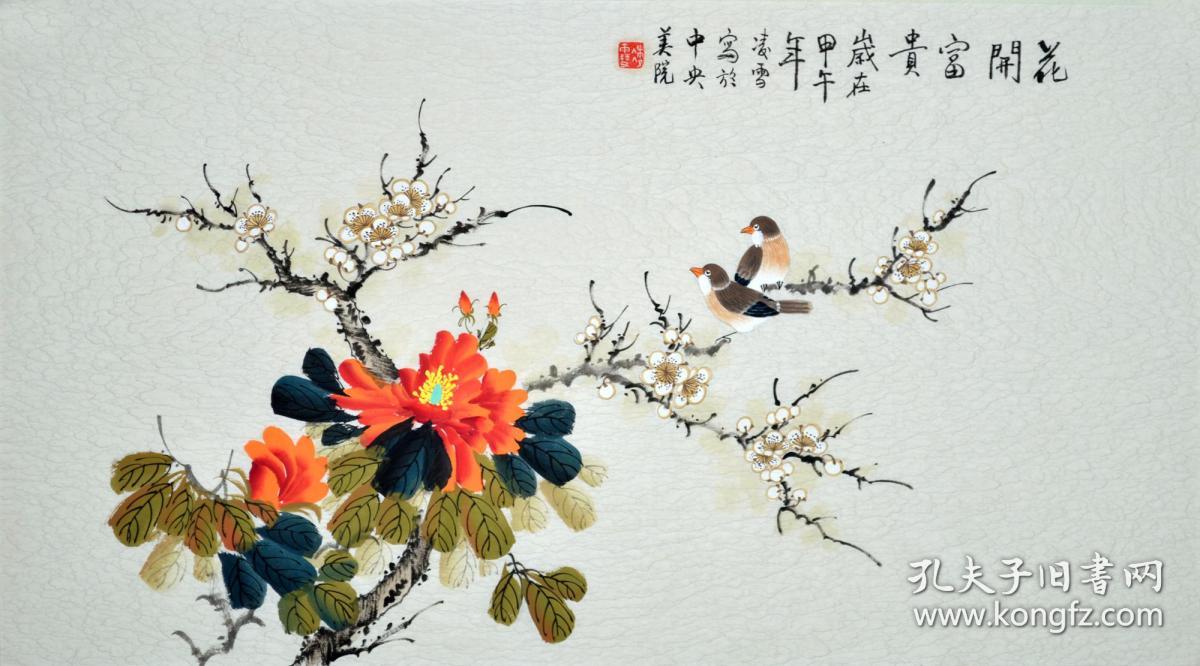 花開富貴
歲在
甲午
年
凌雪
寫於
中央
美院
孔夫子旧書网
www.kongfz.com